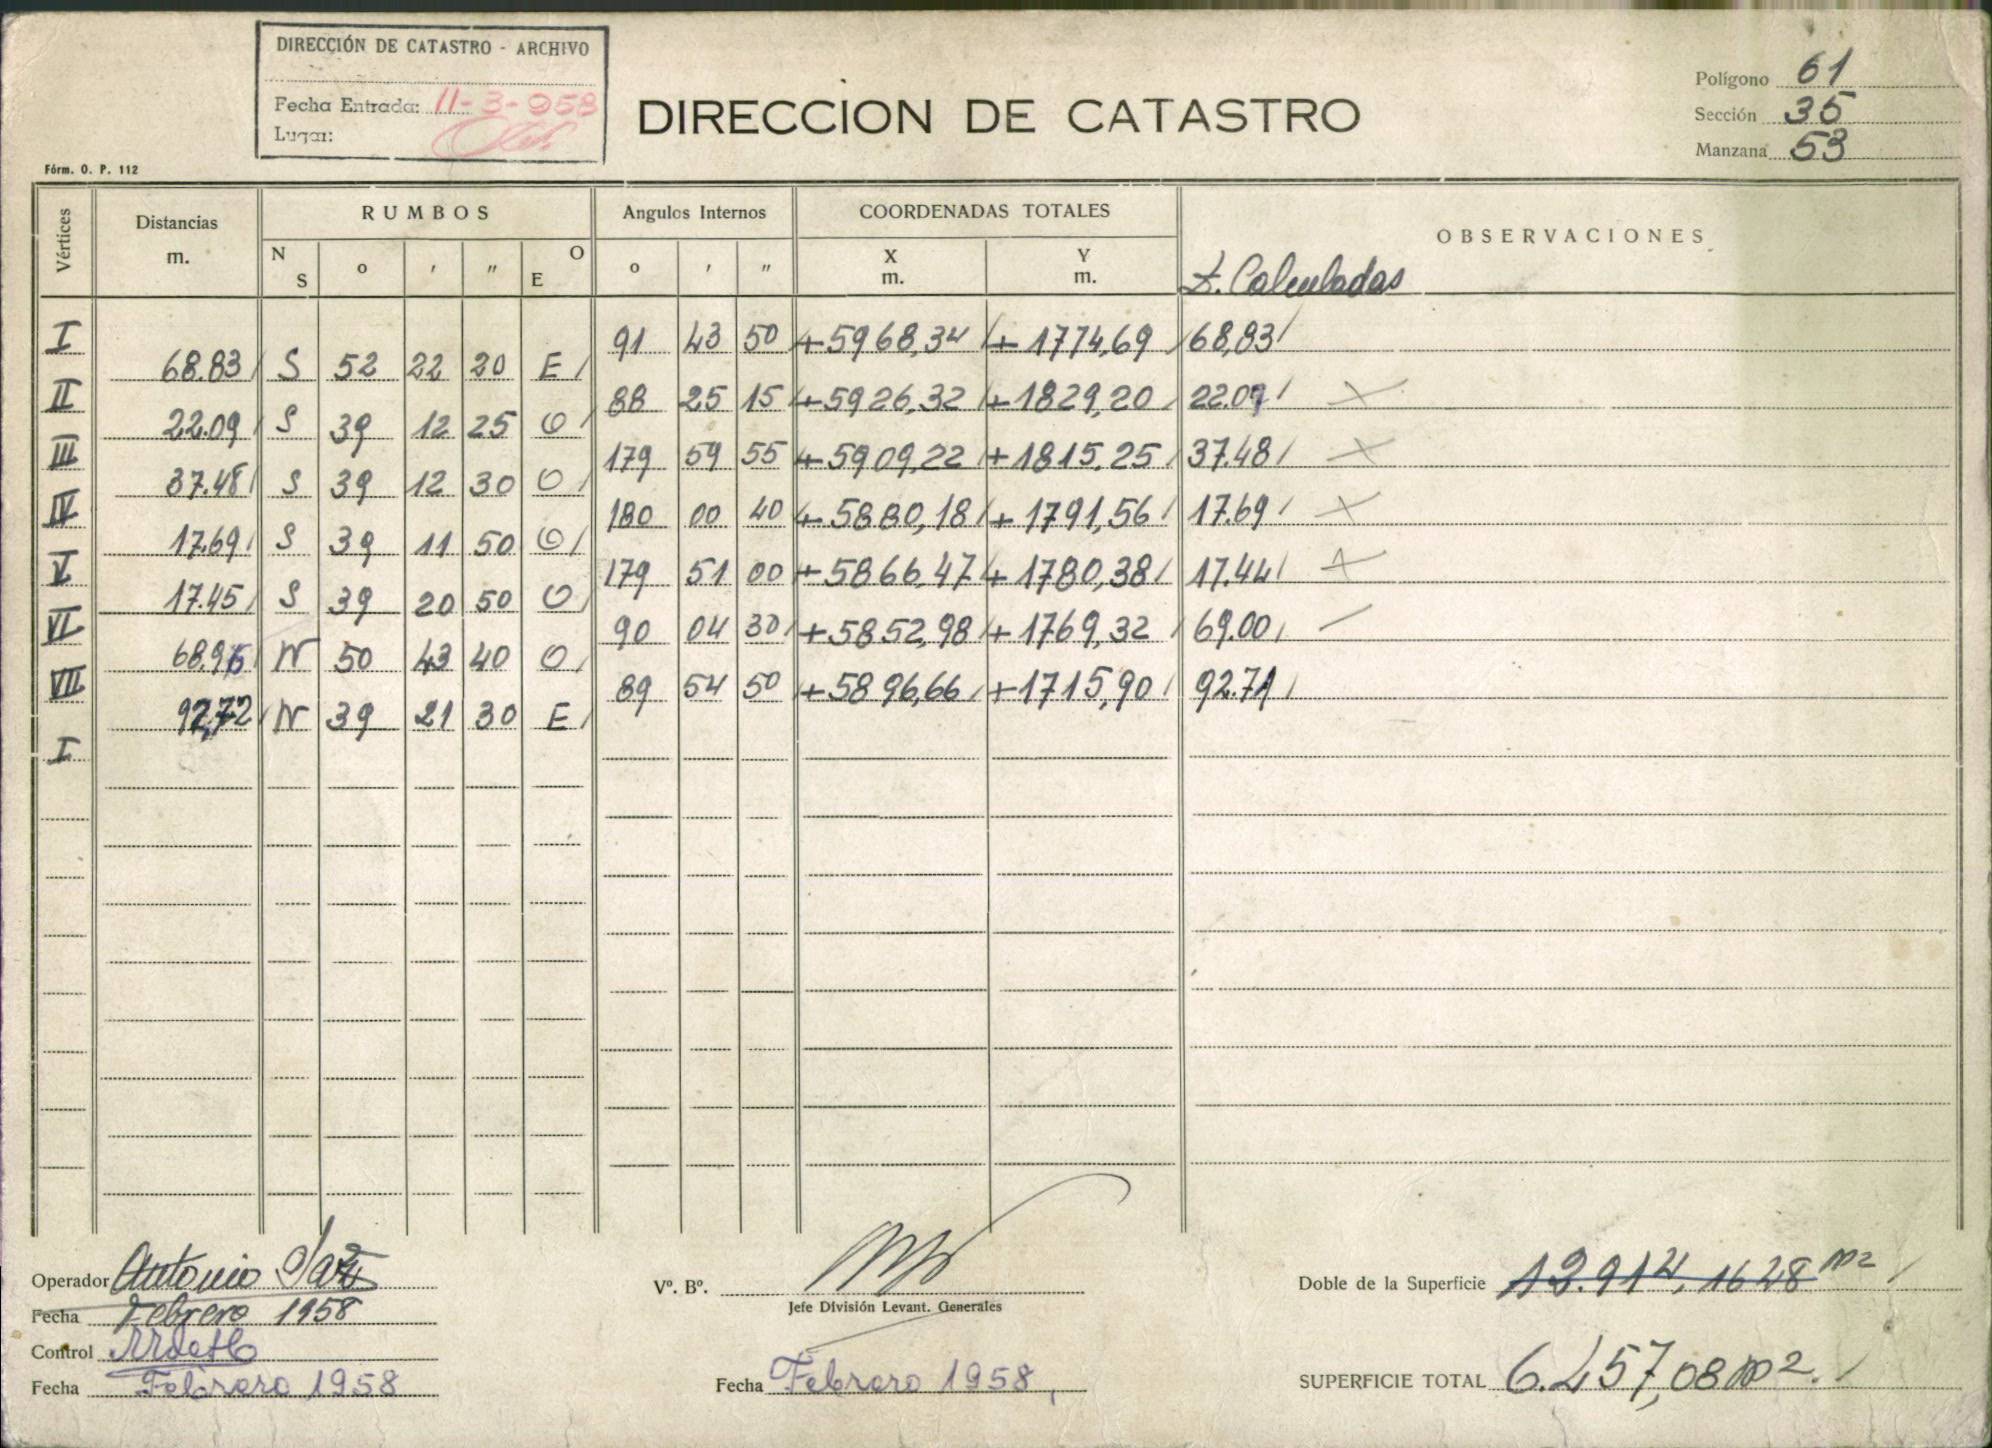 DIRECCIÓN DE CATASTRO - ARCHIVO
Fecha Entrada: 11-3-958
Lugar:
DIRECCION DE CATASTRO
Polígono 61
Sección 35
Manzana 53
Fórm. O. P. 112
Vértices Distancias m. RUMBOS Angulos Internos COORDENADAS TOTALES OBSERVACIONES
N S o ' " O E o ' " X m. Y m. D. Calculadas
I 91 43 50 +5968,34 +1774,69 68,83
68.83 S 52 22 20 E
II 88 25 15 +5926,32 +1829,20 22.09
22.09 S 39 12 25 O
III 179 59 55 +5909,22 +1815,25 37.48
37.48 S 39 12 30 O
IV 180 00 40 +5880,18 +1791,56 17.69
17.69 S 39 11 50 O
V 179 51 00 +5866,47 +1780,38 17.44
17.45 S 39 20 50 O
VI 90 04 30 +5852,98 +1769,32 69.00
68.95 N 50 43 40 O
VII 89 54 50 +5896,66 +1715,90 92.71
92,72 N 39 21 30 E
I
Operador Antonio
Fecha Febrero 1958
Control
Fecha Febrero 1958
Vº. Bº.
Jefe División Levant. Generales
Fecha Febrero 1958
Doble de la Superficie 12.914,1628 m2
SUPERFICIE TOTAL 6.457,08 m2.